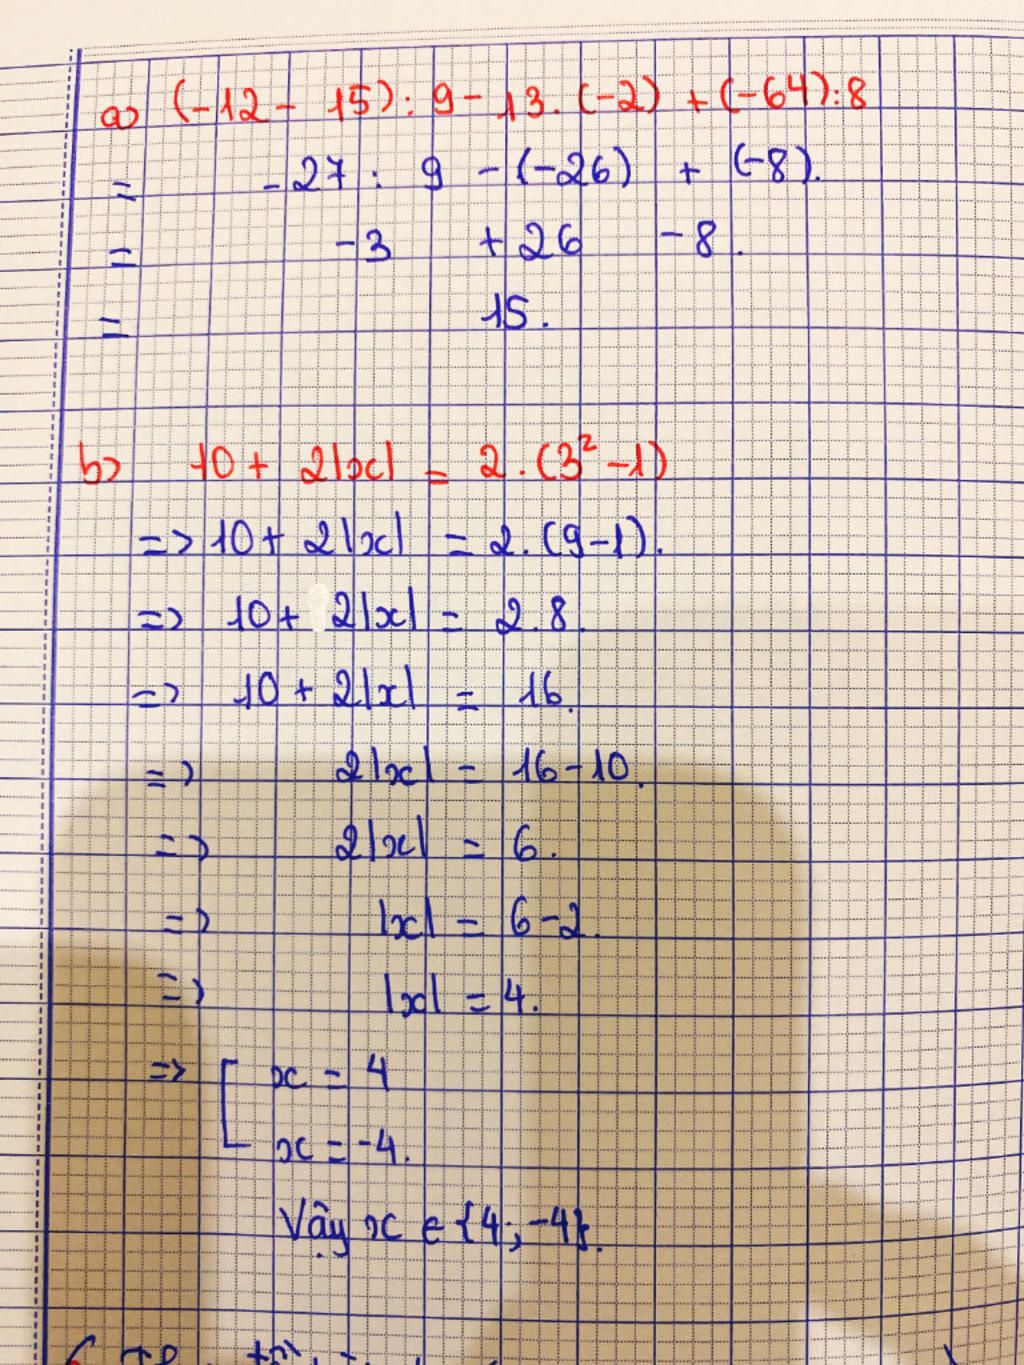 a) (-12 - 15) : 9 - 13 . (-2) + (-64) : 8
= -27 : 9 - (-26) + (-8).
= -3 + 26 - 8.
= 15.
b) 10 + 2|x| = 2 . (3² - 1)
=> 10 + 2|x| = 2 . (9 - 1).
=> 10 + 2|x| = 2 . 8.
=> 10 + 2|x| = 16.
=> 2|x| = 16 - 10.
=> 2|x| = 6.
=> |x| = 6 - 2.
=> |x| = 4.
=> [ x = 4
x = -4.
Vậy x ∈ {4; -4}.